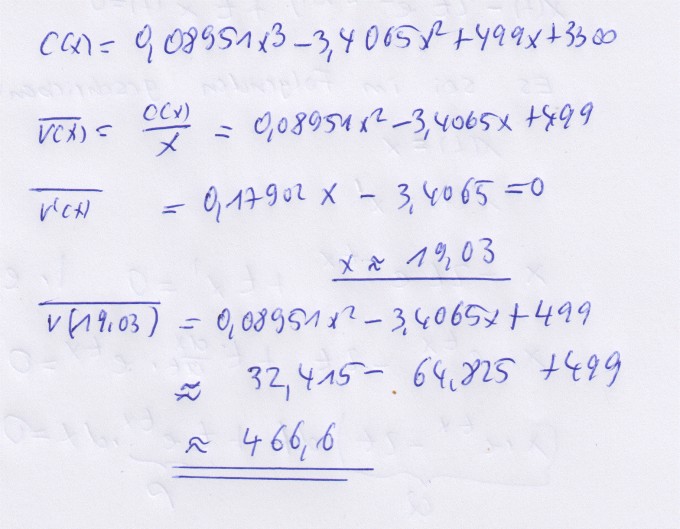 C(x) = 0,08951x³ - 3,4065x² + 499x + 3300
V(x) = C(x)/x = 0,08951x² - 3,4065x + 499
V'(x) = 0,17902x - 3,4065 = 0
x ≈ 19,03
V(19,03) = 0,08951x² - 3,4065x + 499
≈ 32,415 - 64,825 + 499
≈ 466,6